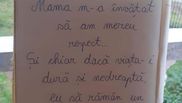 Mama m-a învățat
să am mereu
respect...
Și chiar dacă viața-i
dură si nedreaptă,
eu să rămân un